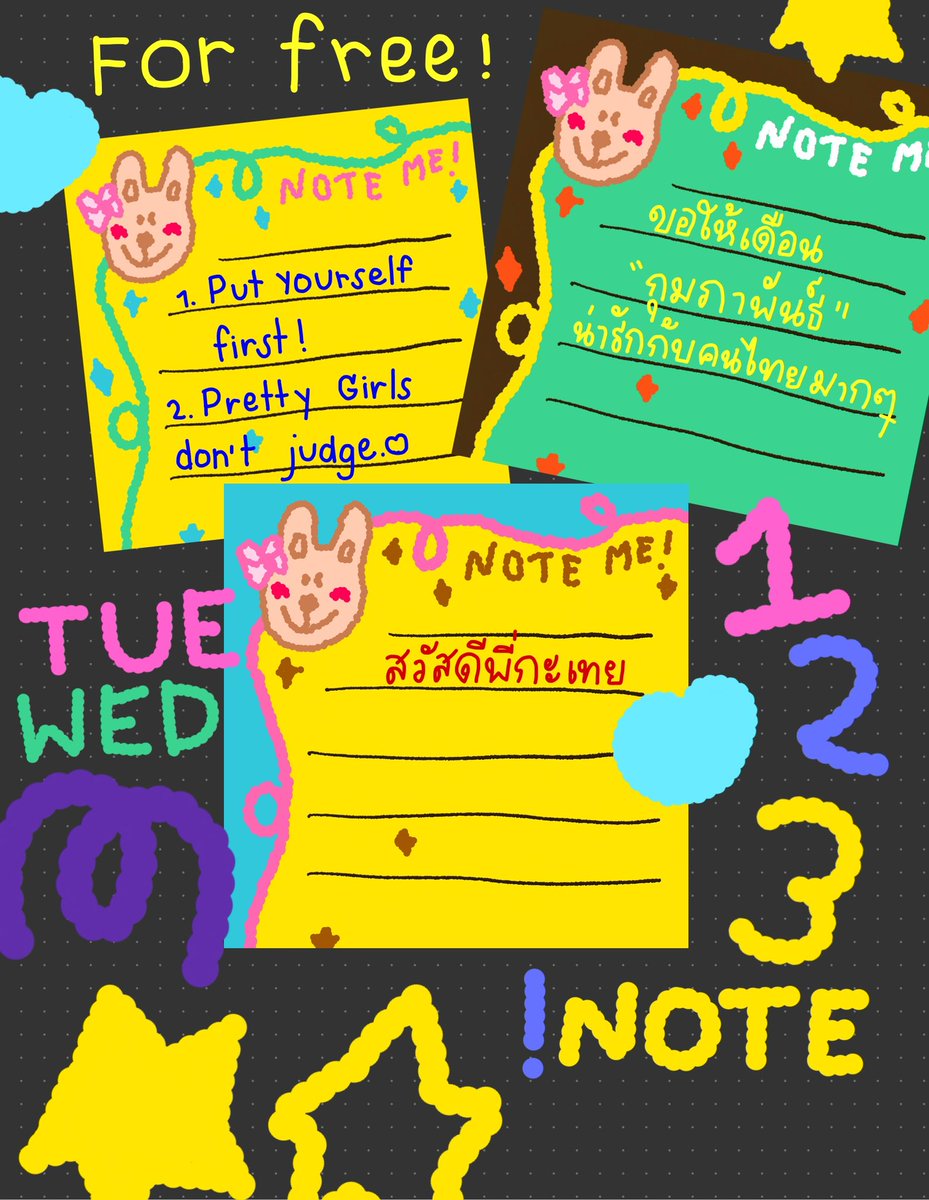 For free!
NOTE ME!
1. Put yourself
first!
2. Pretty Girls
don't judge.
NOTE ME
ขอให้เดือน
"กุมภาพันธ์"
น่ารักกับคนไทยมากๆ
NOTE ME!
สวัสดีพี่กะเทย
TUE
WED
1
2
3
!NOTE